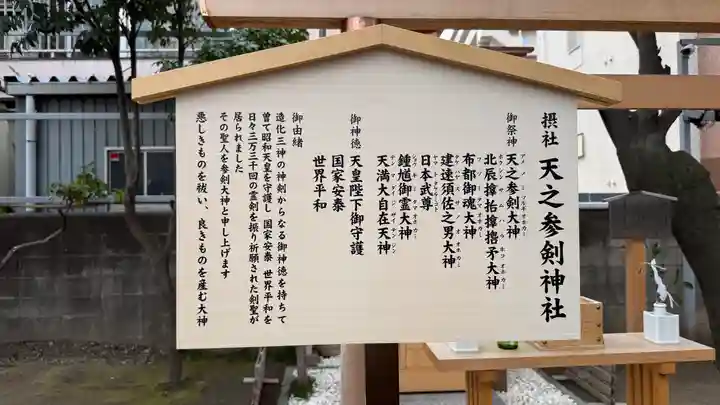 摂社 天之参剣神社
御祭神
天之参剣大神
北辰擣掊擣撸矛大神
布都御魂大神
建速須佐之男大神
日本武尊
鍾馗御霊大神
天満大自在天神
御神徳
天皇陛下御守護
国家安泰
世界平和
御由緒
造化三神の神剣からなる御神徳を持ちて
曽て昭和天皇を守護し 国家安泰 世界平和を
日々三万三千回の霊剣を振り祈願された剣聖が
居られました
その聖人を参剣大神と申し上げます
悪しきものを祓い、良きものを産む大神